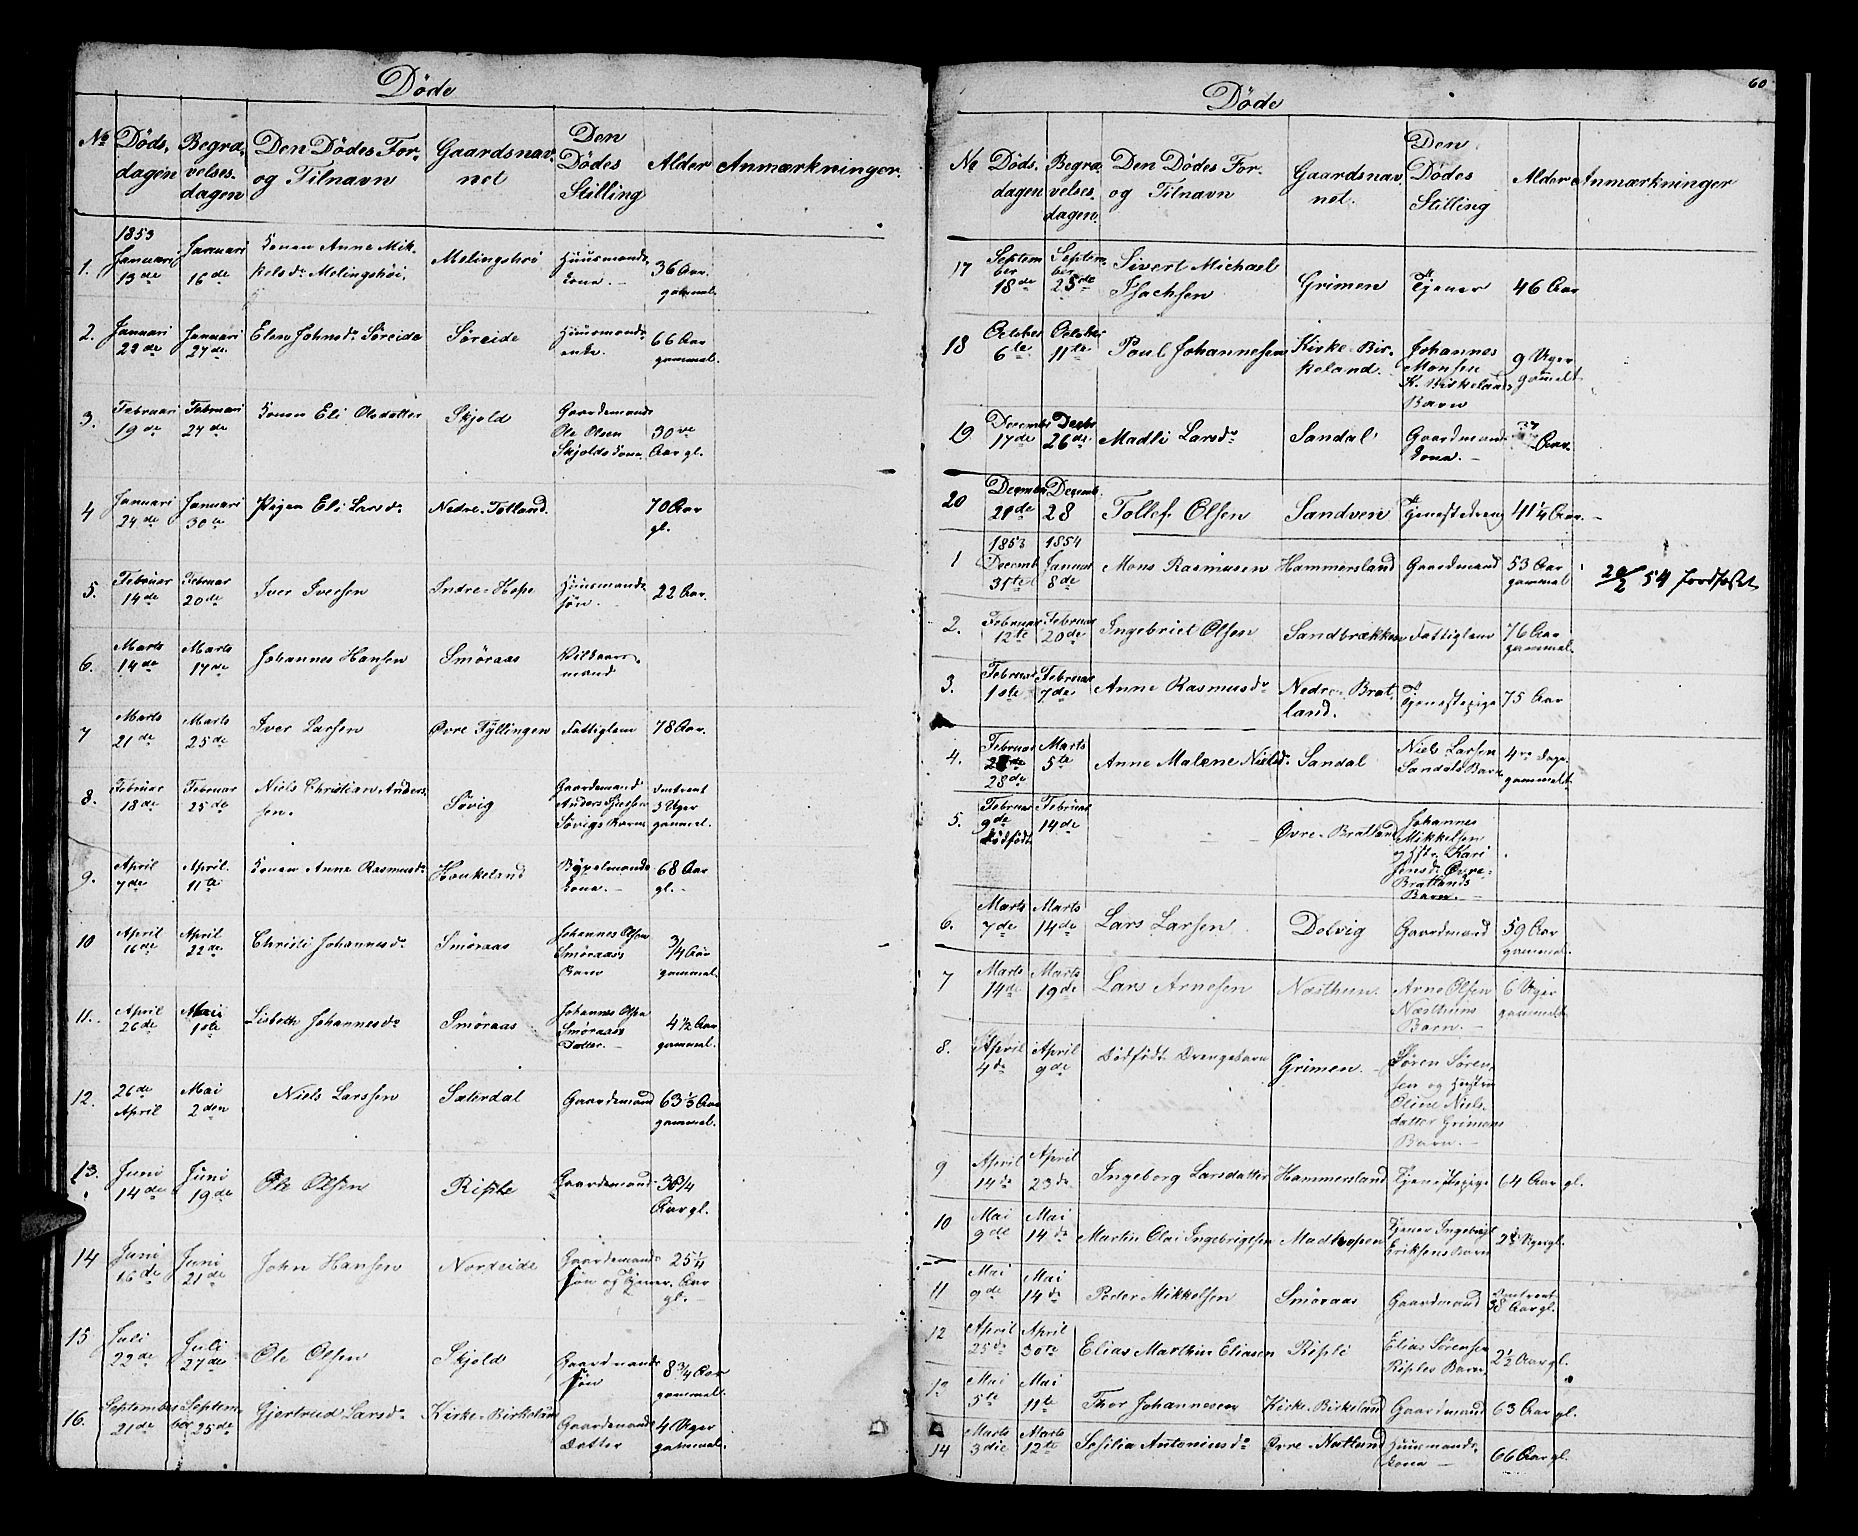 Døde
No Døds- dagen Begra- velses- dagen Den Dødes For- og Tilnavn Gaardsnav- net Den Dødes Stilling Alder Anmærkninger.
1. 1853 Januari 13de Januari 16de Konen Anne Mik- kelsdr Melingshøi Melingshøi Huusmands- kona.- 36 Aar gammel.
2. Januari 23de Januari 27de Elen Johnsdr Søreide Søreide Huusmands- enke.- 66 Aar gammel.
3. Februari 19de Februari 27de Konen Eli Olsdatter Skjold Gaardemands Ole Olsen Skjolds kona. 30ve Aar gl.
4 Januari 24de Januari 30te Pigen Eli Larsdr Nedre-Totland 70 Aar gl.
5. Februar 14de Februar 20de Iver Iversen Indre-Hope Huusmands- søn.- 22 Aar.
6. Marts 14de Marts 17de Johannes Hansen Smøraas Vilkaars- mand
7 Marts 21de Marts 25de Iver Larsen Øvre Fyllingen Fattiglem 78 Aar.
8. Februar 18de Februar 25de Niels Christian Anders- sen. Søvig Gaardemand Anders Søvigs Barn omtrent 3 Uger gammel.
9. April 7de April 11te Konen Anne Rasmusdr Haukeland kona.- 68 Aar gl.-
10 April 16de April 22de Christi Johannesdr Smøraas Johannes Olsen Smøraas's Barn 3/4 Aar gammel.
11. April 26de Mai 1ste Lisbeth Johannesdr Smøraas Johannes Olsen Smøraas's Datter.- 4 1/2 Aar gammel.
12. 26de April Mai 2den Niels Larssen Sælerdal Gaardemand 63 1/3 Aar gammel.
13. Juni 14de Juni 19de Ole Olsen Riple Gaardemand 36 3/4 Aar gl.
14 Juni 16de Juni 21de John Hansen Nordeide Gaardemands- søn og Tjener. 25 1/4 Aar gl.-
15 Juli 22de Juli 27de Ole Olsen Skjold Gaardmands- søn 8 3/4 Aar gammel.
16. September 21de Septem- ber 25de Gjertrud Larsdr Kirke-Birkeland Gaardmands- Datter 4 Uger gammel.
60
Døde
No Døds- dagen Begra- velses- dagen. Den Dødes For- og Tilnavn Gaardsnav- net. Den Dødes Stilling Alder Anmærkninger
17 Septem- ber 18de Septem- ber 25de Sivert Michael Isachsen Grimen Tjener 46 Aar
18 October 6te October 11te Poul Johannesen Kirke-Bir- keland. Johannes Monsen K. Birkelands Barn 9 Uger gammelt
19 Decembr 17de Decbr 26de Madli Larsdr Sandal Gaardmands- kona.- 37 Aar.
20 Decembr 21de Decemb. 28 Tollef Olsen Sandven Tjenestedreng 41 1/4 Aar.-
1 1853 Decemb. 31te 1854 Januar 8de Mons Rasmusen Hammersland Gaardmand 53 Aar gammel 20/2 54
2. Februar 12te Februar 20de Ingebriet Olsen Sandbrækken Fattiglem 76 Aar gammel.
3. Februar 1ste Februar 7de Anne Rasmusdr Nedre-Brat- land. Tjenestepige 75 Aar
4. Februar 28de Marts 5te Anne Malene Nielsdr Sandal Niels Larsen Sandals Barn 4re Dage gammelt
5. Februar 9de dødfødt Februar 14de - - - Øvre-Bratland Johannes Mikkelsen og Hstr. Kari Jensdr Øvre- Bratlands Barn.-
6. Marts 7de Marts 14de Lars Larsen Dolvig Gaardmand 59 Aar gammel.
7 Marts 14de Marts 19de Lars Arnesen Næsthun. Arne Olsen Næsthuns Barn.- 6 Uger gammelt
8. April 4de April 9de Dødfødt Drengebarn Grimen.- Søren Søren- sen og Hustru Oline Niels- datter Grimens Barn.-
9 April 14de April 23de Ingeborg Larsdatter Hammersland Tjenestepige 64 Aar gl.
10 Mai 9de Mai 14de Martin Olai Ingebrigtsen Madhopen Tjener Ingebrigt Eriksens Barn Uger gl.
11 Mai 9de Mai 14de Peder Mikkelsen Smøraas Gaardmand omtrent 38 Aar gl.
12 April 25de April 30te Elias Marthin Eliasen Riple Elias Sørensen Riples Barn 2 1/2 Aar gl.
13 Mai 5te Mai 11te Thor Johannesen Kirke-Birkeland Gaardmand 63 Aar gl.
14 Marts 3die Marts 12te Sesilia Antoniusdr Øvre-Natland Huusmands- kona - 66 Aar gl.